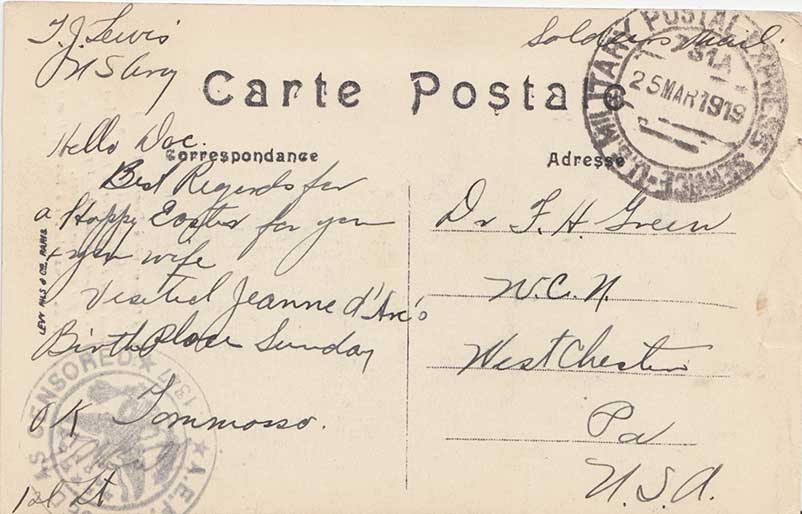 T. J. Lewis
Soldiers Mail.
U.S. MILITARY POSTAL EXPRESS SERVICE
731A
25 MAR 1919
Carte Postale
Hello Doc.
Correspondance
Best Regards for
a Happy Easter for you
+ your wife
Visited Jeanne d'Arc's
Birth Place Sunday
OK Tommasso.
1st Lt
LEVY FILS & Cie, PARIS
A.E.F. PASSED AS CENSORED
Adresse
Dr F. H. Green
W.C.N.
West Chester
Pa
U.S.A.